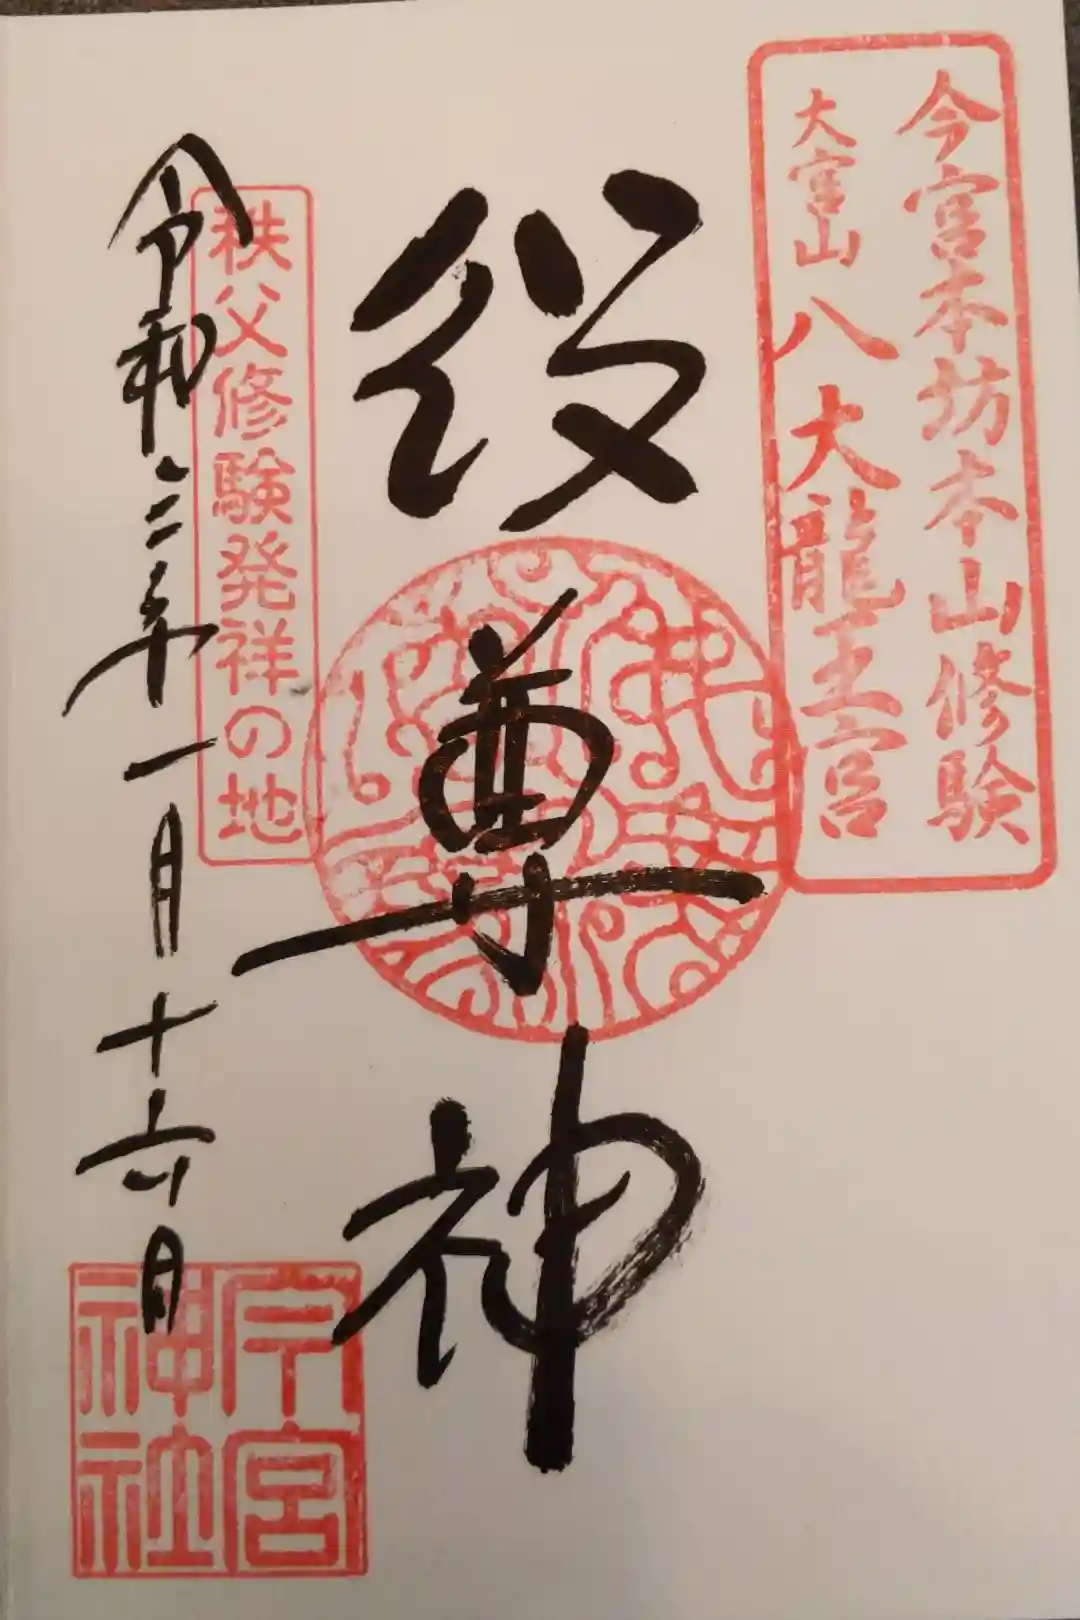 今宮本坊本山修験
大宮山 八大龍王宮
役尊神
秩父修験発祥の地
令和二年一月十六日
今宮神社